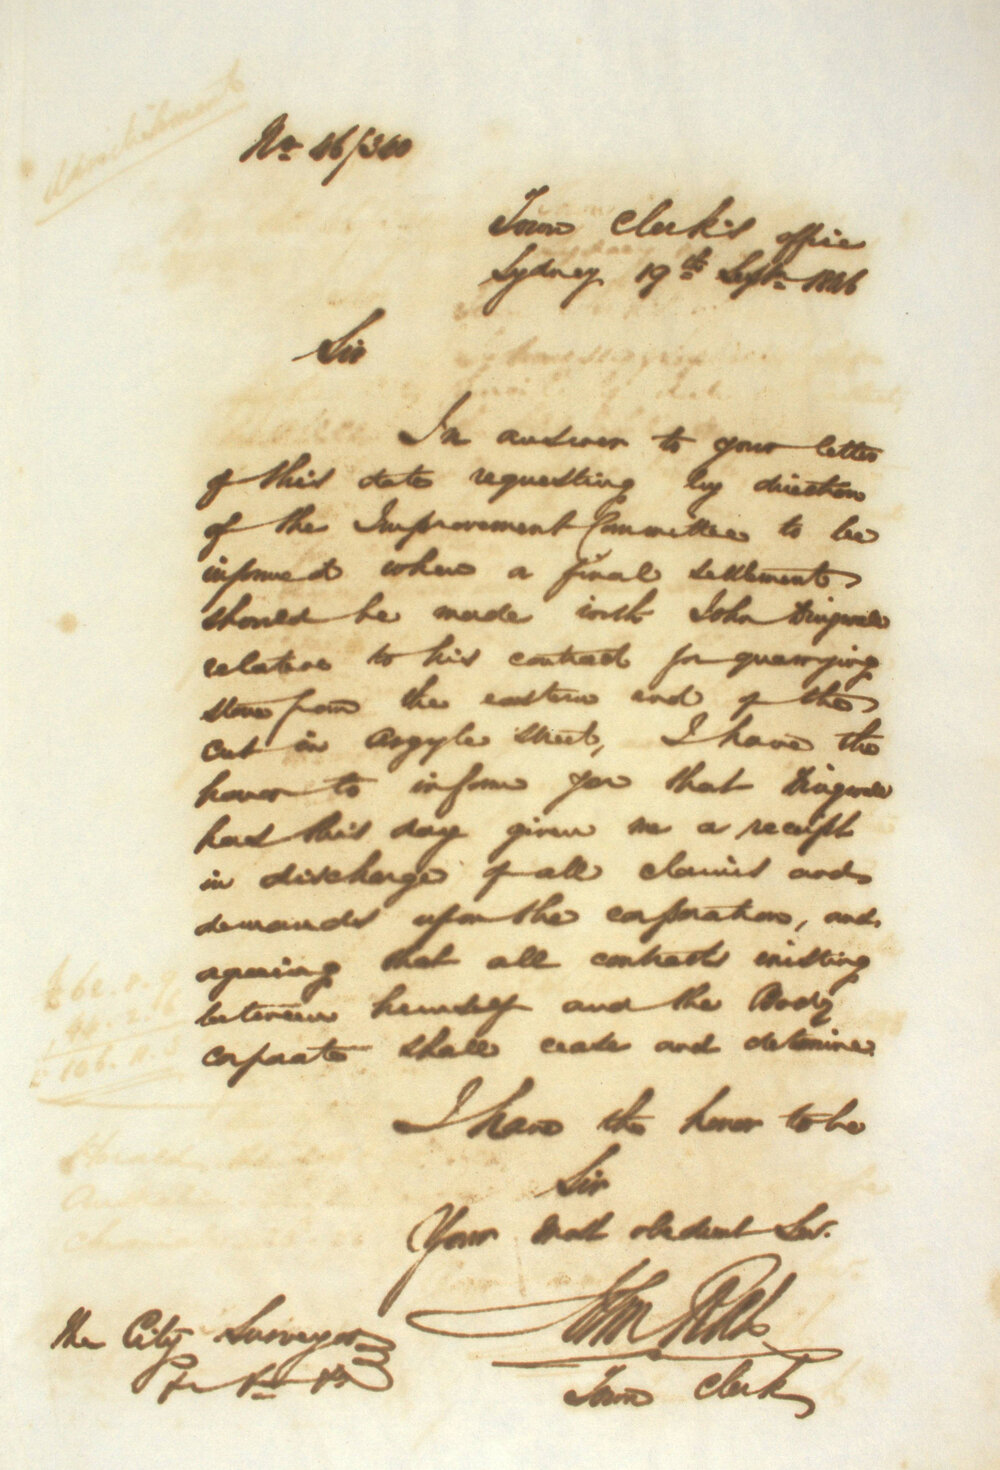 No 46/310
Town Clerk's office
Sydney 19th Septr 1846
Sir
In answer to your letter
of this date requesting by direction
of the Improvement Committee to be
informed when a final settlement
should be made with John Dingwall
relative to his contract for quarrying
stone from the eastern end of the
Cut in Argyle Street, I have the
honor to inform you that Dingwall
has this day given me a receipt
in discharge of all claims and
demands upon the corporation, and
agreeing that all contracts existing
between himself and the Body
corporate shall cease and determine.
I have the honor to be
Sir
Your Most obedient Ser.
John Rae
Town Clerk
The City Surveyor